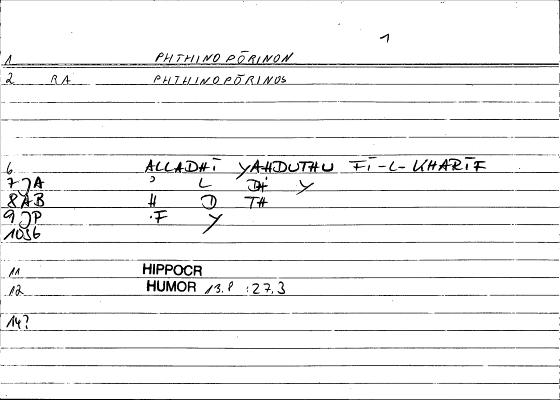 1
1 PHTHINOPŌRINON
2 RA PHTHINOPŌRINOS
6 ALLADHĪ YAHDUTHU FĪ-L-KHARĪF
7 JA ʾ L DH Y
8 AB H D TH
9 JP .F Y
10 S6
11 HIPPOCR
12 HUMOR 13.8 :27,3
14?